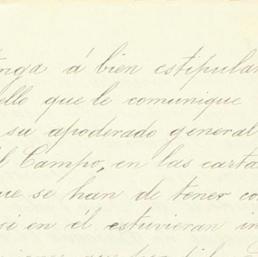 tenga á bien estipular
ello que le comunique
su apoderado general
l Campo, en las carta
ue se han de tener co
si en él estuvieran in